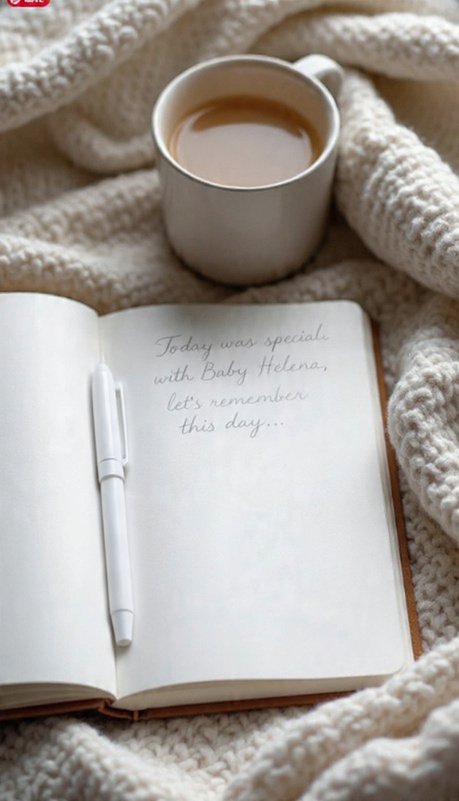 Today was special.
with Baby Helena,
let's remember
this day...